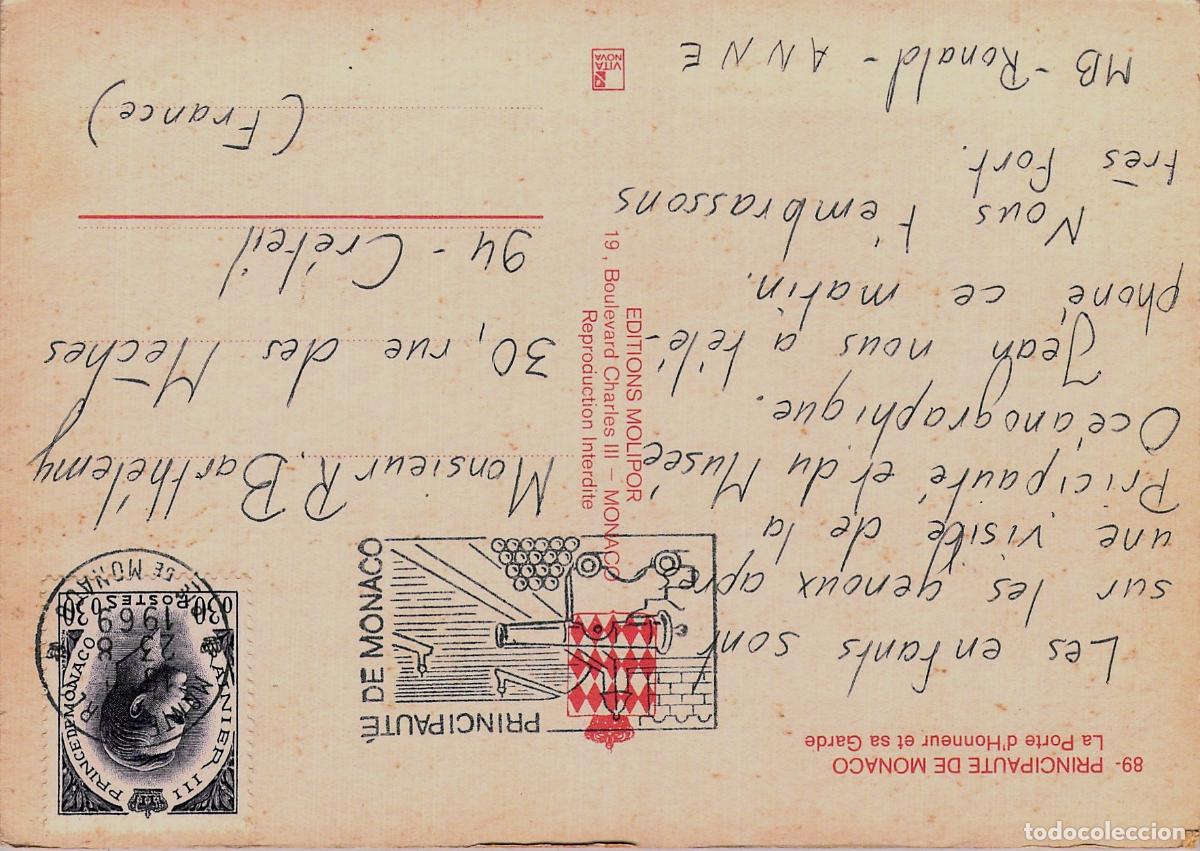 89 - PRINCIPAUTE DE MONACO
La Porte d'Honneur et sa Garde
Les enfants sont
sur les genoux après
une visite de la
Pricipauté et du Musée
Océanographique.
Jean nous a télé-
phoné ce matin.
Nous t'embrassons
très fort.
MB - Ronald - ANNE
EDITIONS MOLIPOR
19, Boulevard Charles III - MONACO
Reproduction Interdite
VITA
NOVA
PRINCIPAUTÉ
DE MONACO
RANIER III
PRINCE DE MONACO
0,30 POSTES 0,30
MONTE
23
8
1969
DE MONACO
Monsieur R. Barthélemy
30, rue des Mèches
94 - Créteil
(France)
todocoleccion